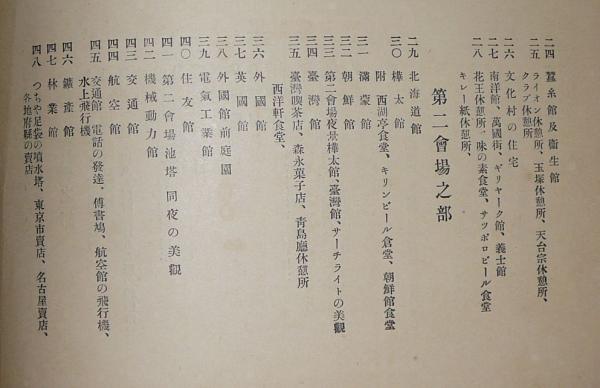 二四　蠶糸館及衞生館
二五　ライオン休憩所、玉塚休憩所、天台宗休憩所、
クラブ休憩所
二六　文化村の住宅
二七　南洋館、萬國街、ギリヤーク館、義士館
二八　花王休憩所、味の素食堂、サッポロビール食堂
キレー紙休憩所、
第二會場之部
二九　北海道館
三〇　樺太館
附　西湖亭食堂、キリンビール倉堂、朝鮮館食堂
三一　滿蒙館
三二　朝鮮館
三三　第二會場夜景樺太館、臺灣館、サーチライトの美觀
三四　臺灣館
三五　臺灣喫茶店、森永菓子店、靑島廳休憩所
西洋軒食堂、
三六　外國館
三七　英國館
三八　外國館前庭園
三九　電氣工業館
四〇　住友館
四一　第二會場池塔　同夜の美觀
四二　機械動力館
四三　交通館
四四　航空館
四五　交通館　電話の發達、傳書鳩、航空館の飛行機、
水上飛行機
四六　鑛產館
四七　林業館
四八　つちや足袋の噴水塔、東京市賣店、名古屋賣店、
各地府縣の賣店